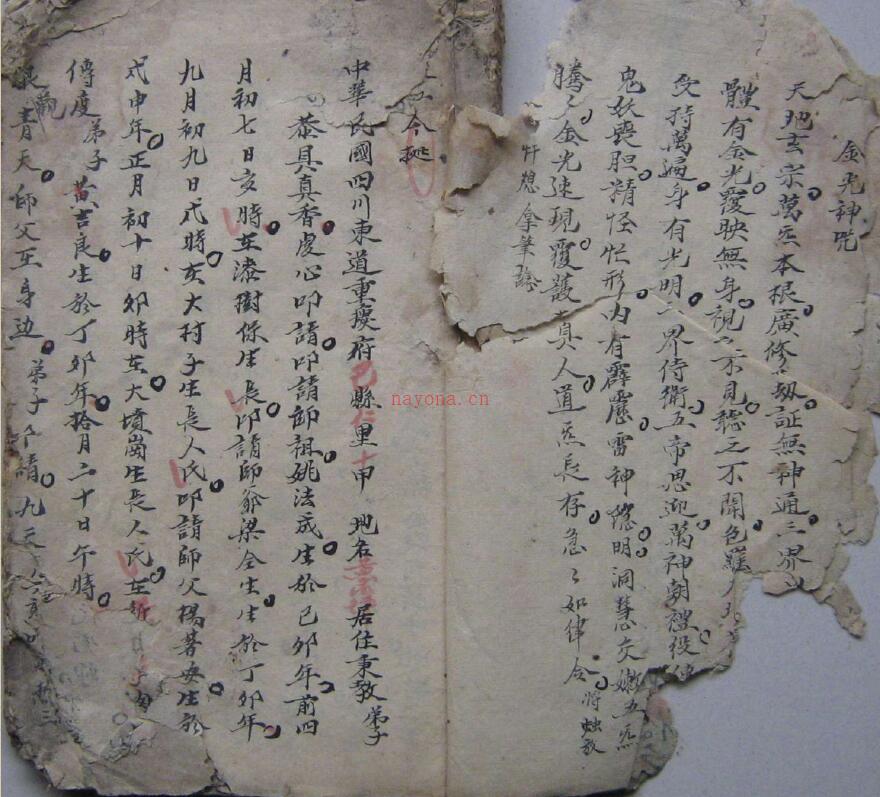 金光神咒
天地玄宗萬炁本根廣修劫証無神通三界
體有金光覆映無身視之不見聽之不聞色羅
受持萬遍身有光明三界侍衛五帝思迎萬神朝禮役使
鬼妖喪胆精怪忙形內有霹靂雷神隱明洞慧交嫩五炁
騰〻金光速現覆護真人道炁長存急〻如律令將蚰放
拿筆
今挻
中華民國四川東道重慶府巴縣仁里十甲地名居住秉教弟子
恭具真香虔心叩請叩請師祖姚法成生於己卯年前四
月初七日亥時在漆樹保生長叩請師爺梁全生生於丁卯年
九月初九日戌時在大村子生長人氏叩請師父楊著安生於
戊申年正月初十日卯時在大墳崗生長人氏在
傳度弟子黃吉良生於丁卯年拾月二十日午時
青天師父在身边弟子叩請九天
nayona.cn